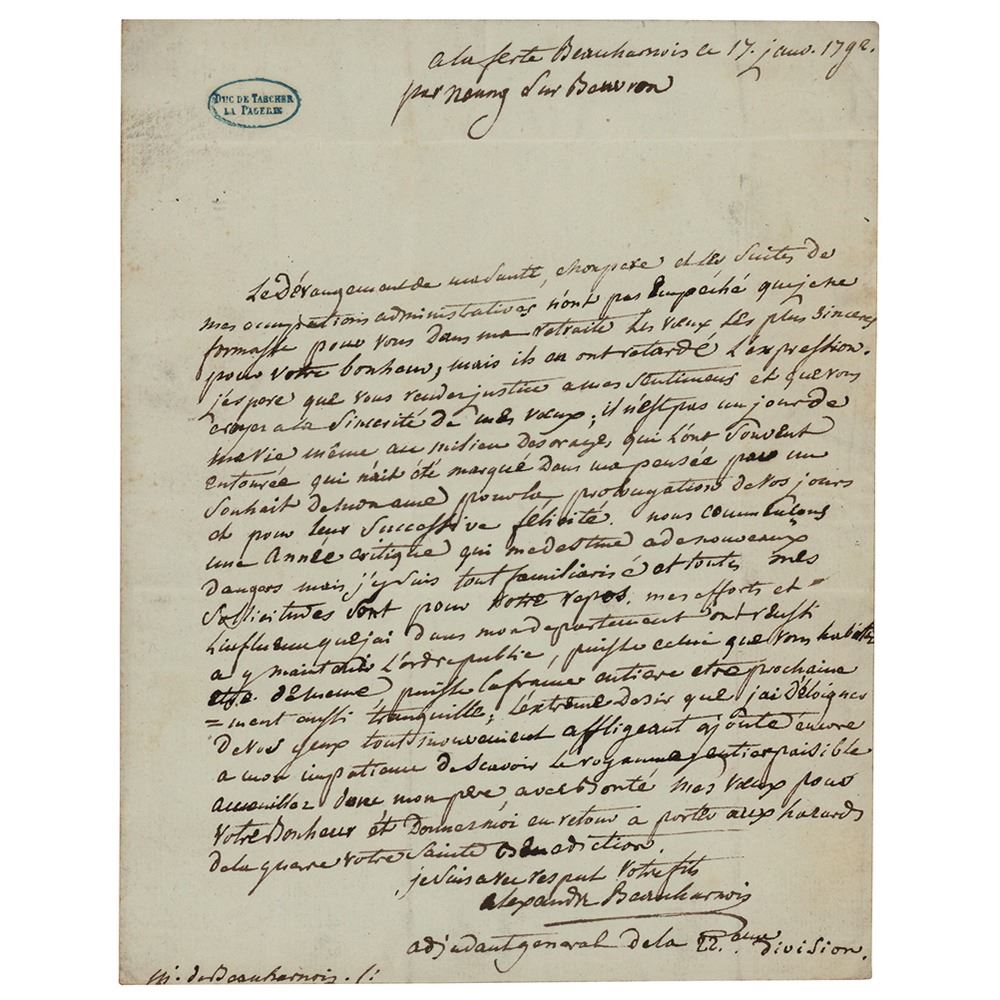 a la ferte Beauharnois ce 17. janv. 1792.
par neung Sur Beuvron
DUC DE TASCHER
LA PAGERIE
Le Dérangement de ma Santé, mon pere et les Suites de
mes occupations administratives n'ont pas Empéché que je ne
formasse pour vous dans ma retraite les vœux les plus Sinceres
pour votre bonheur, mais ils en ont retardé L'expression.
j'espere que vous rendez justice a mes Sentimens et que vous
croyez a la Sincerité de mes vœux; il n'est pas un jour de
ma vie même au milieu des orages qui L'ont Souvent
entourée qui n'ait été marqué dans ma pensée par un
Souhait de mon ame pour la prolongation de vos jours
et pour leur Successive félicité. nous commençons
une Année critique qui me destine a de nouveaux
dangers mais j'y Suis tout familiarisé et toutes mes
Sollicitudes Sont pour votre repos. mes efforts et
L'influence que j'ai dans mon departement ont reussi
a y maintenir L'ordre public, puisse celui que vous habitez
de meme puisse la france entiere etre prochaine
=ment aussi tranquille; L'extreme desir que j'ai D'éloigner
de vos yeux tout mouvement affligeant ajoute encore
a mon impatience de Scavoir le royaume entier paisible
accueillez donc mon pere avec Bonté mes vœux pour
votre Bonheur et Donnez moi en retour a porter aux hazards
de la guerre votre Sainte Benediction.
je Suis avec respect votre fils
alexandre Beauharnois
adjudant general de la 22.eme division.
M. de Beauharnois.